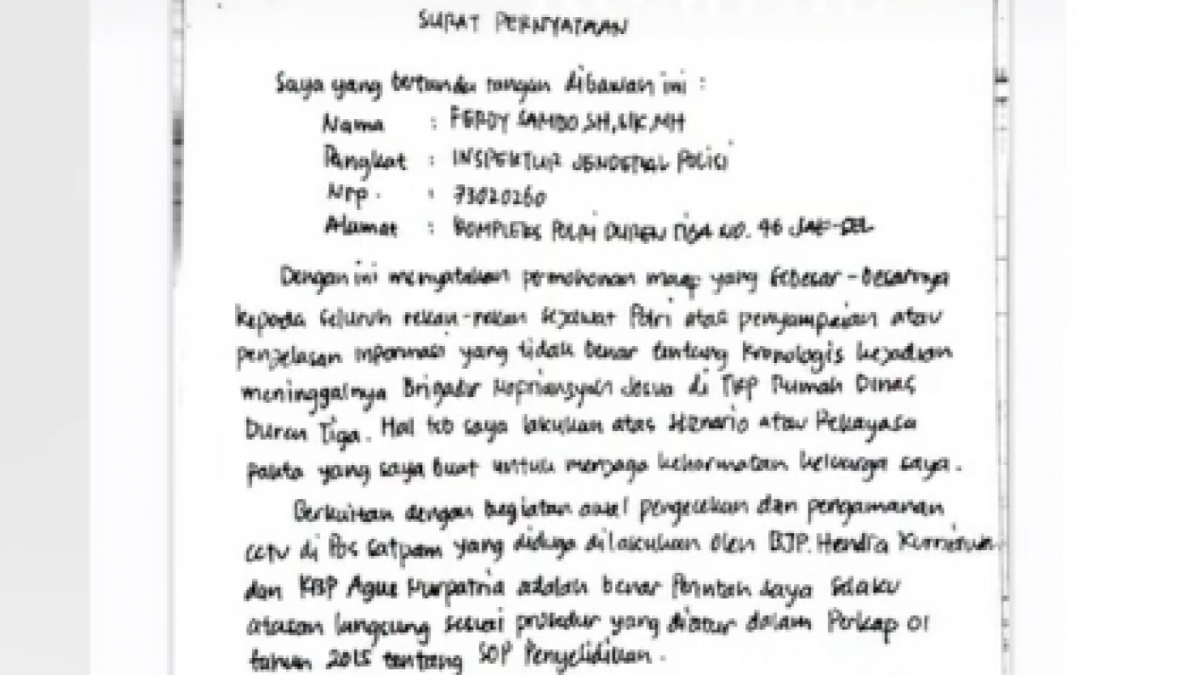 SURAT PERNYATAAN
Saya yang bertanda tangan dibawah ini :
Nama : FERDY SAMBO, SH, SIK, MH
Pangkat : INSPEKTUR JENDERAL POLISI
Nrp. : 73020260
Alamat : KOMPLEKS POLRI DUREN TIGA NO. 46 JAK-SEL
Dengan ini menyatakan permohonan maaf yang sebesar-besarnya
kepada seluruh rekan-rekan sejawat Polri atas penyampaian atau
penjelasan informasi yang tidak benar tentang Kronologis kejadian
meninggalnya Brigadir Nopriansyah Josua di TKP Rumah Dinas
Duren Tiga. Hal tsb saya lakukan atas skenario atau Rekayasa
fakta yang saya buat untuk menjaga kehormatan keluarga saya.
Berkaitan dengan kegiatan awal pengecekan dan pengamanan
cctv di Pos Satpam yang diduga dilakukan oleh BJP. Hendra Kurniawan
dan KBP Agus Nurpatria adalah benar Perintah saya selaku
atasan langsung sesuai prosedur yang diatur dalam Perkap 01
tahun 2015 tentang SOP Penyelidikan.